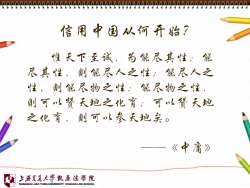 信用中国从何开始?
惟天下至诚，为能尽其性；能
尽其性，则能尽人之性；能尽人之
性，则能尽物之性；能尽物之性，
则可以赞天地之化育；可以赞天地
之化育，则可以参天地矣。
——《中庸》
上海交通大学凯原法学院